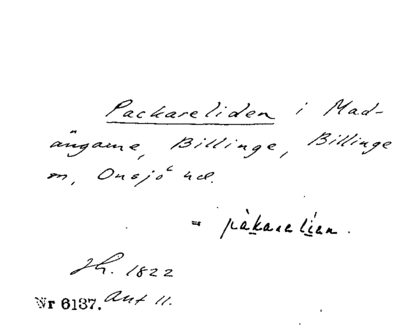 Packareliden i Mad-
ängarne, Billinge, Billinge
sn, Onsjö hd.
= pàkarelíen.
Jh. 1822
Nr 6137. Ant 11.